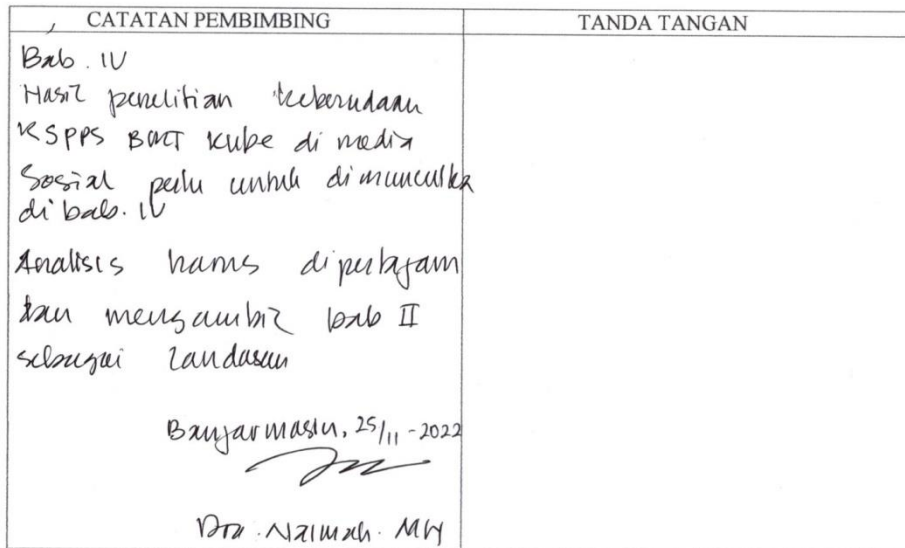 CATATAN PEMBIMBING
TANDA TANGAN
Bab. IV
Hasil penelitian keberadaan
KSPPS BMT Kube di media
Sosial perlu untuk dimunculka
di bab. IV
Analisis harus dipertajam
dan mengambil bab II
sebagai landasan
Banjarmasin, 25/11-2022
Dra. Naimah. MH